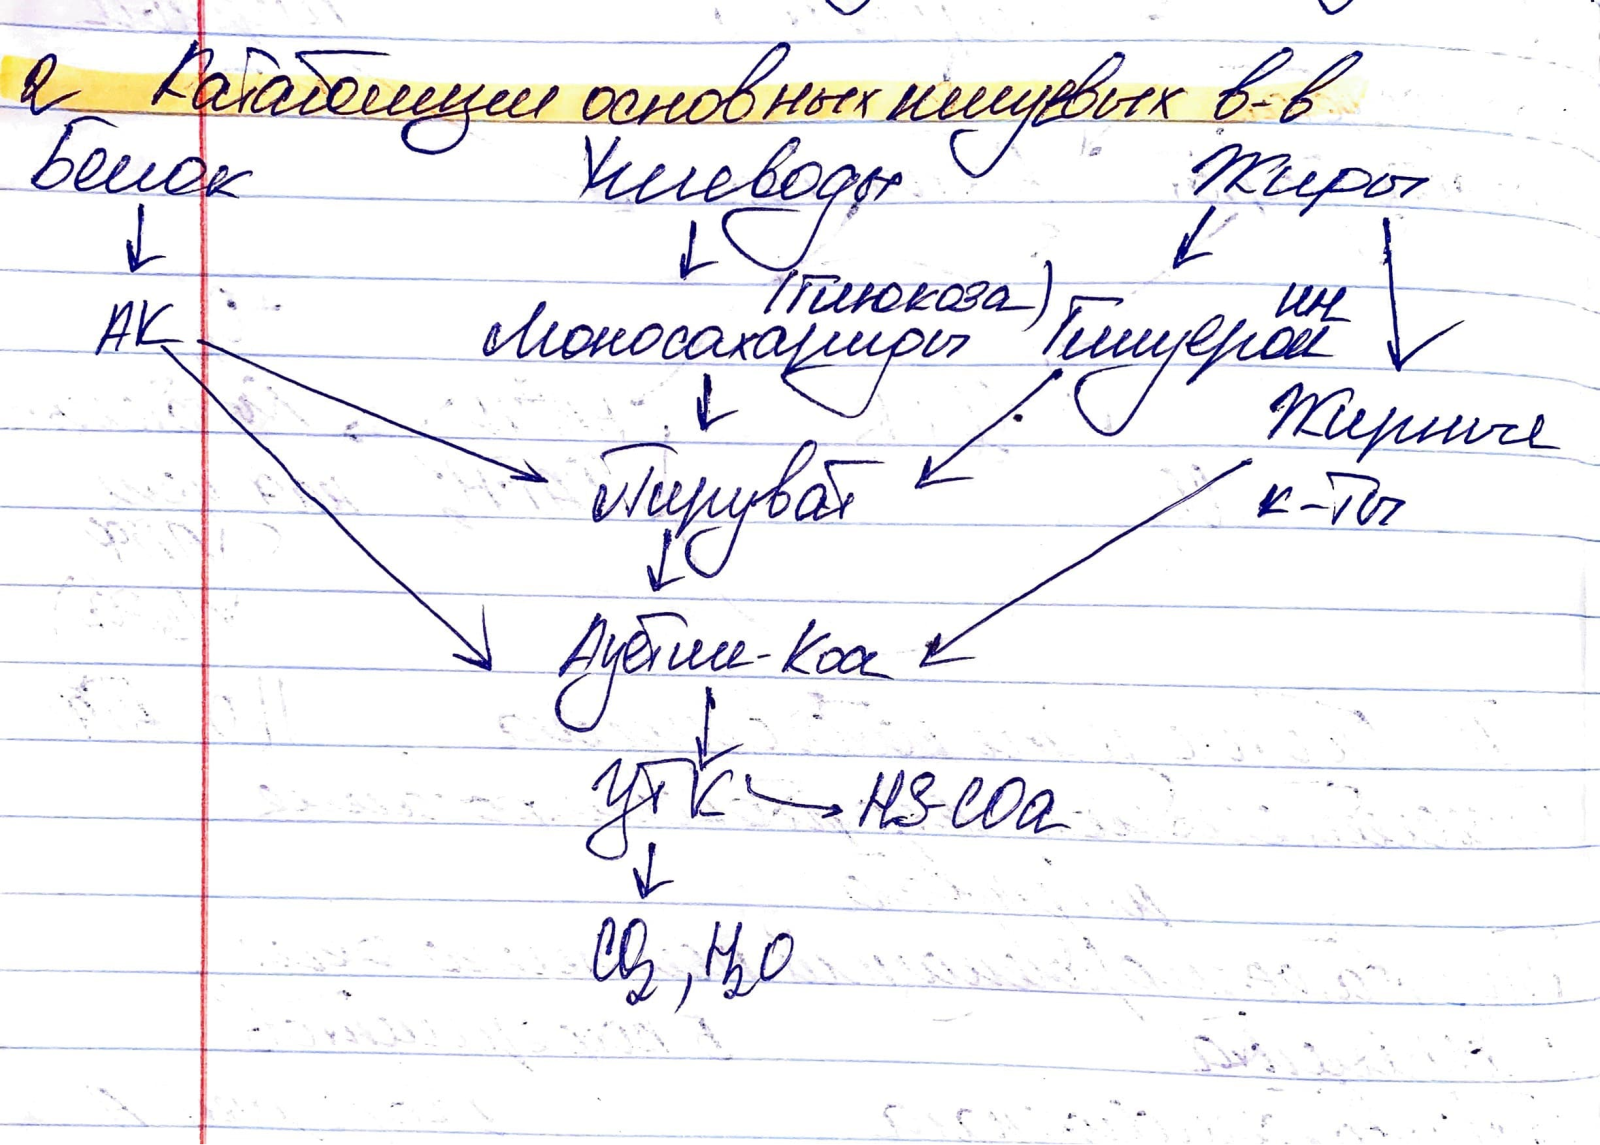 2 Катаболизм основных пищевых в-в
Белок Углеводы Жиры
(глюкоза)
АК Моносахариды Глицерол
ин
Жирные
Пируват к-ты
Ацетил-Коа
ЦТК HS-COa
CO2, H2O